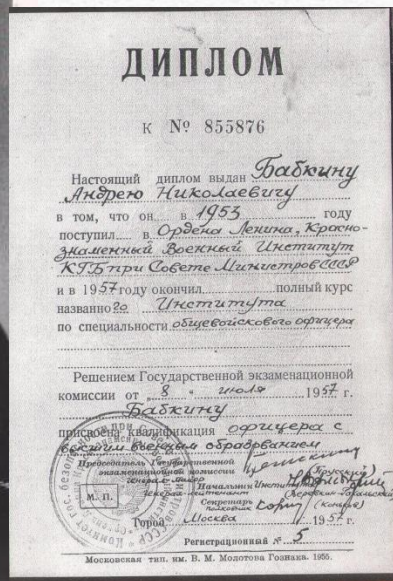 ДИПЛОМ
К № 855876
Настоящий диплом выдан Бабкину
Андрею Николаевичу
в том, что он в 1953 году
поступил в Ордена Ленина, Красно-
знаменный Военный Институт
КГБ при Совете Министров СССР
и в 1957 году окончил полный курс
названного Института
по специальности общевойскового офицера
Решением Государственной экзаменационной
комиссии от „8" июля 1957 г.
Бабкину
присвоена квалификация офицера с
высшим военным образованием
Председатель Государственной
экзаменационной комиссии
Генерал-майор
Начальник Института
Генерал-лейтенант
Секретарь
полковник
М. П.
Город Москва 1957 г.
Регистрационный № 5
Московская тип. им. В. М. Молотова Гознака. 1955.